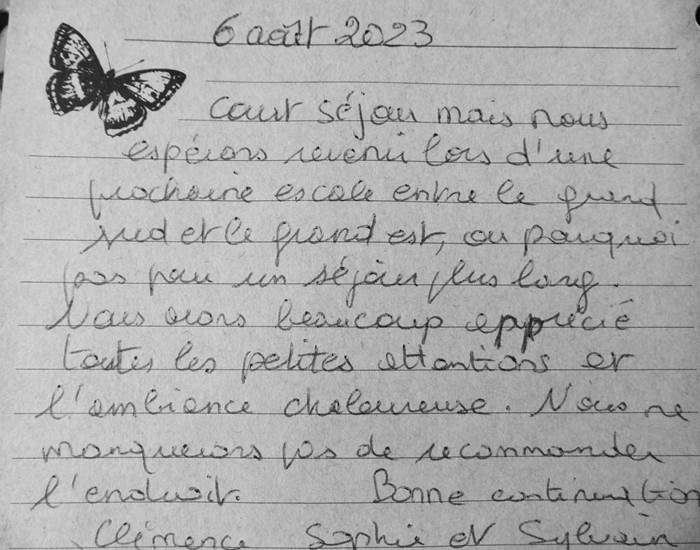 6 août 2023
Court séjour mais nous
espérons revenir lors d'une
prochaine escale entre le grand
sud et le grand est, ou pourquoi
pas pour un séjour plus long.
Nous avons beaucoup apprécié
toutes les petites attentions et
l'ambiance chaleureuse. Nous ne
manquerons pas de recommander
l'endroit. Bonne continuation
Clémence Sophie et Sylvain